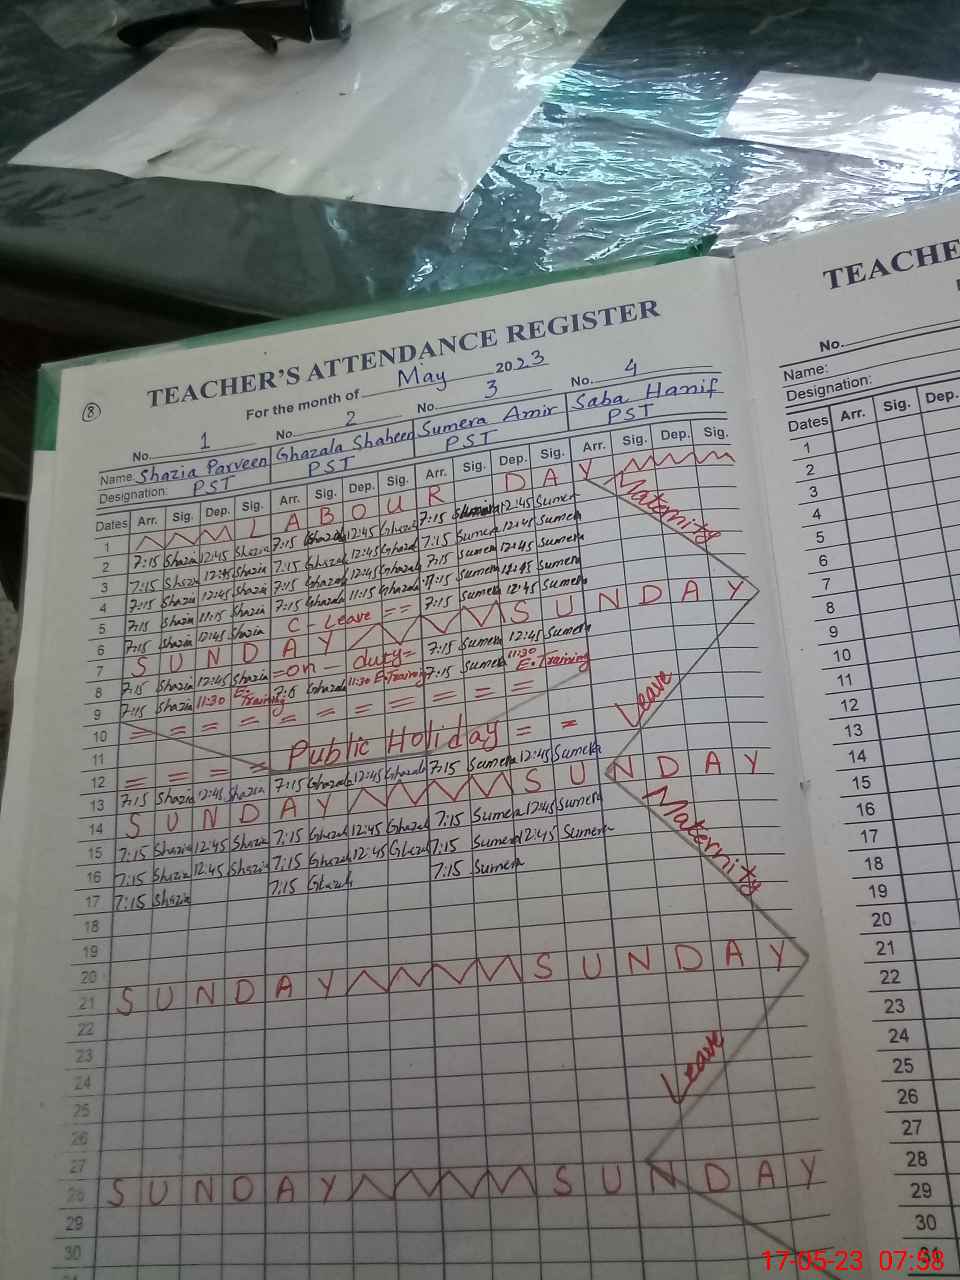 8
TEACHER'S ATTENDANCE REGISTER
For the month of May 2023
No. 1 No. 2 No. 3 No. 4
Name: Shazia Parveen Ghazala Shaheen Sumera Amir Saba Hanif
Designation: PST PST PST PST
Dates Arr. Sig. Dep. Sig. Arr. Sig. Dep. Sig. Arr. Sig. Dep. Sig. Arr. Sig. Dep. Sig.
1 LABOUR DAY
2 7:15 Shazia 12:45 Shazia 7:15 Ghazala 12:45 Ghazala 7:15 Sumera 12:45 Sumera
3 7:15 Shazia 12:45 Shazia 7:15 Ghazala 12:45 Ghazala 7:15 Sumera 12:45 Sumera
4 7:15 Shazia 12:45 Shazia 7:15 Ghazala 12:45 Ghazala 7:15 Sumera 12:45 Sumera
5 7:15 Shazia 11:15 Shazia 7:15 Ghazala 11:15 Ghazala Sumera Sumera
6 7:15 Shazia 12:45 Shazia C - Leave = = 7:15 Sumera 12:45 Sumera
7 SUNDAY SUNDAY
8 7:15 Shazia 12:45 Shazia = on - duty = 7:15 Sumera 12:45 Sumera
9 7:15 Shazia 11:30 E. Training Ghazala 11:30 E. Training 7:15 Sumera 11:30 E. Training
10 = = = = = = = = = = =
11
12 = = = = Public Holiday = =
13 7:15 Shazia 12:45 Shazia 7:15 Ghazala 12:45 Ghazala 7:15 Sumera 12:45 Sumera
14 SUNDAY SUNDAY
15 7:15 Shazia 12:45 Shazia 7:15 Ghazala 12:45 Ghazala 7:15 Sumera 12:45 Sumera
16 7:15 Shazia 12:45 Shazia 7:15 Ghazala 12:45 Ghazala 7:15 Sumera 12:45 Sumera
17 7:15 Shazia 7:15 Ghazala 7:15 Sumera
18
19
20
21 SUNDAY SUNDAY
22
23
24
25
26
27
28 SUNDAY SUNDAY
29
30
Maternity
Leave
Maternity
Leave
TEACHE
No.
Name:
Designation:
Dates Arr. Sig. Dep.
1
2
3
4
5
6
7
8
9
10
11
12
13
14
15
16
17
18
19
20
21
22
23
24
25
26
27
28
29
30
31
17-05-23 07:58